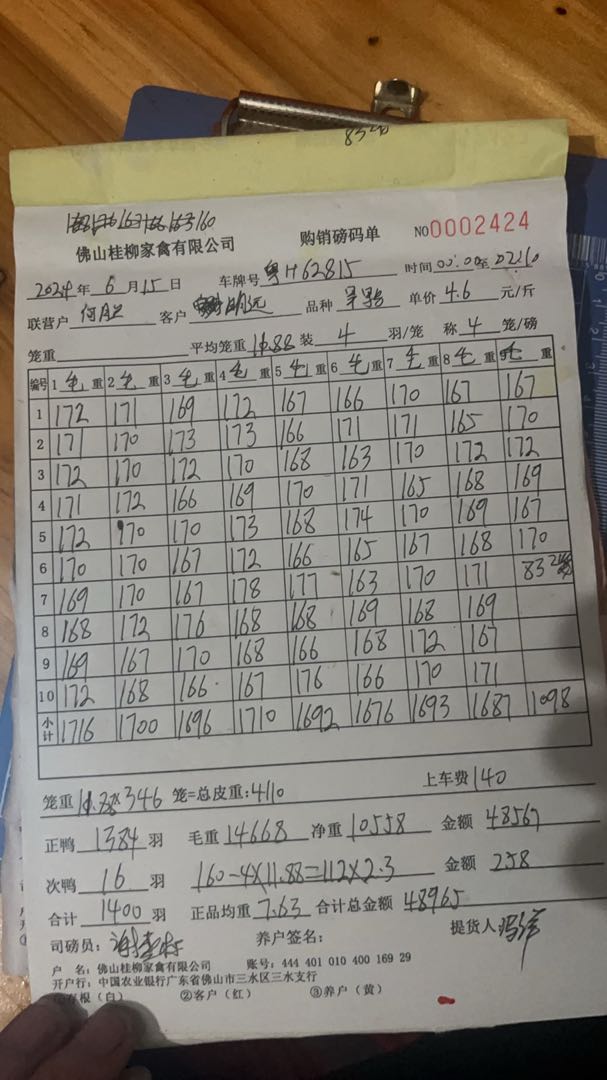 8340
160
佛山桂柳家禽有限公司 购销磅码单 NO0002424
2024年 6 月 15 日 车牌号 粤H62815 时间 00:00 至 02:10
联营户 客户 明远 品种 单价 4.6 元/斤
笼重 平均笼重 11.88 装 4 羽/笼 称 4 笼/磅
编号 1 毛 重 2 毛 重 3 毛 重 4 毛 重 5 毛 重 6 毛 重 7 毛 重 8 毛 重 9 毛 重
1 172 171 169 172 167 166 170 167 167
2 171 170 173 173 166 171 171 165 170
3 172 170 172 170 168 163 170 172 172
4 171 172 166 169 170 171 165 168 169
5 172 170 170 173 168 174 170 169 167
6 170 170 167 172 166 165 167 168 170
7 169 170 167 178 177 163 170 171 83 2笼
8 168 172 176 168 168 169 168 169
9 169 167 170 168 166 168 172 167
10 172 168 166 167 176 166 170 171
小计 1716 1700 1696 1710 1692 1676 1693 1687 1098
笼重 11.88×346 笼=总皮重:4110 上车费 140
正鸭 1384 羽 毛重 14668 净重 10558 金额 48567
次鸭 16 羽 160-4×11.88=112×2.3 金额 258
合计 1400 羽 正品均重 7.63 合计总金额 48965
司磅员: 养户签名: 提货人
户 名: 佛山桂柳家禽有限公司 账号: 444 401 010 400 169 29
开户行: 中国农业银行广东省佛山市三水区三水支行
①存根（白） ②客户（红） ③养户（黄）